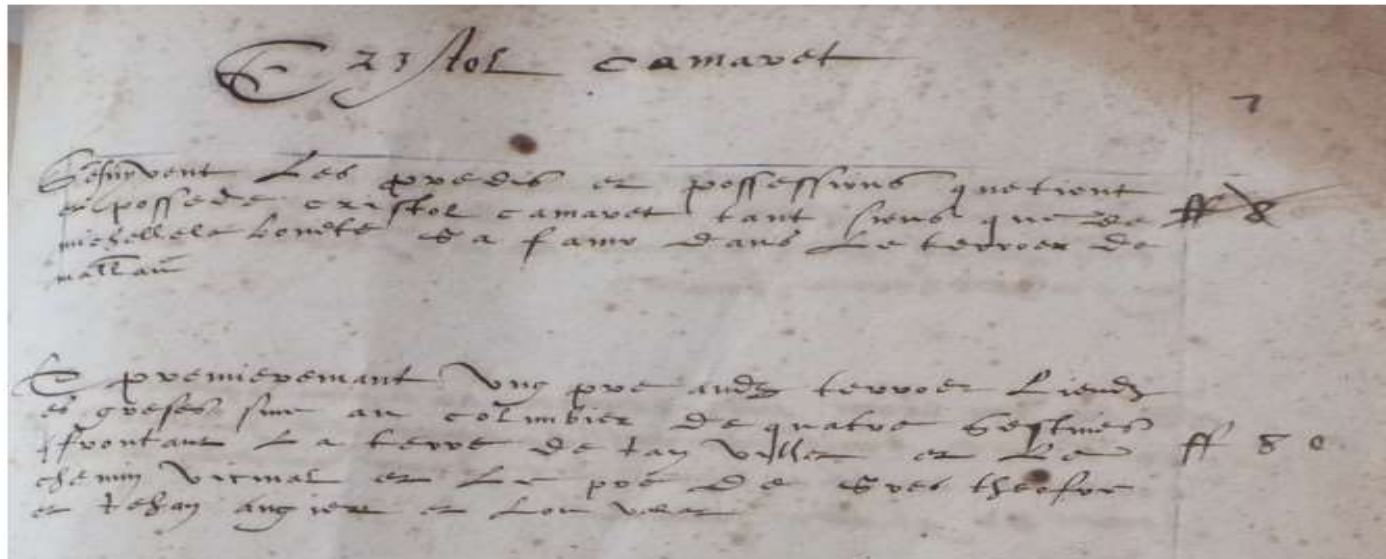 Cristol Camaret
7
Sensuyvent Les predis et possessions que tient
et possede cristol camaret tant siens que de ff 8
michellete sa famo dans Le terroer de
mallau
E premieremant Ung pre audz terroer Lieudz
es greses sive au colombier de quatre sestiers
frontant La terre de Jan Villet et Le ff 8 e
chemin vicinal et Le pre de
et Jehan angier et